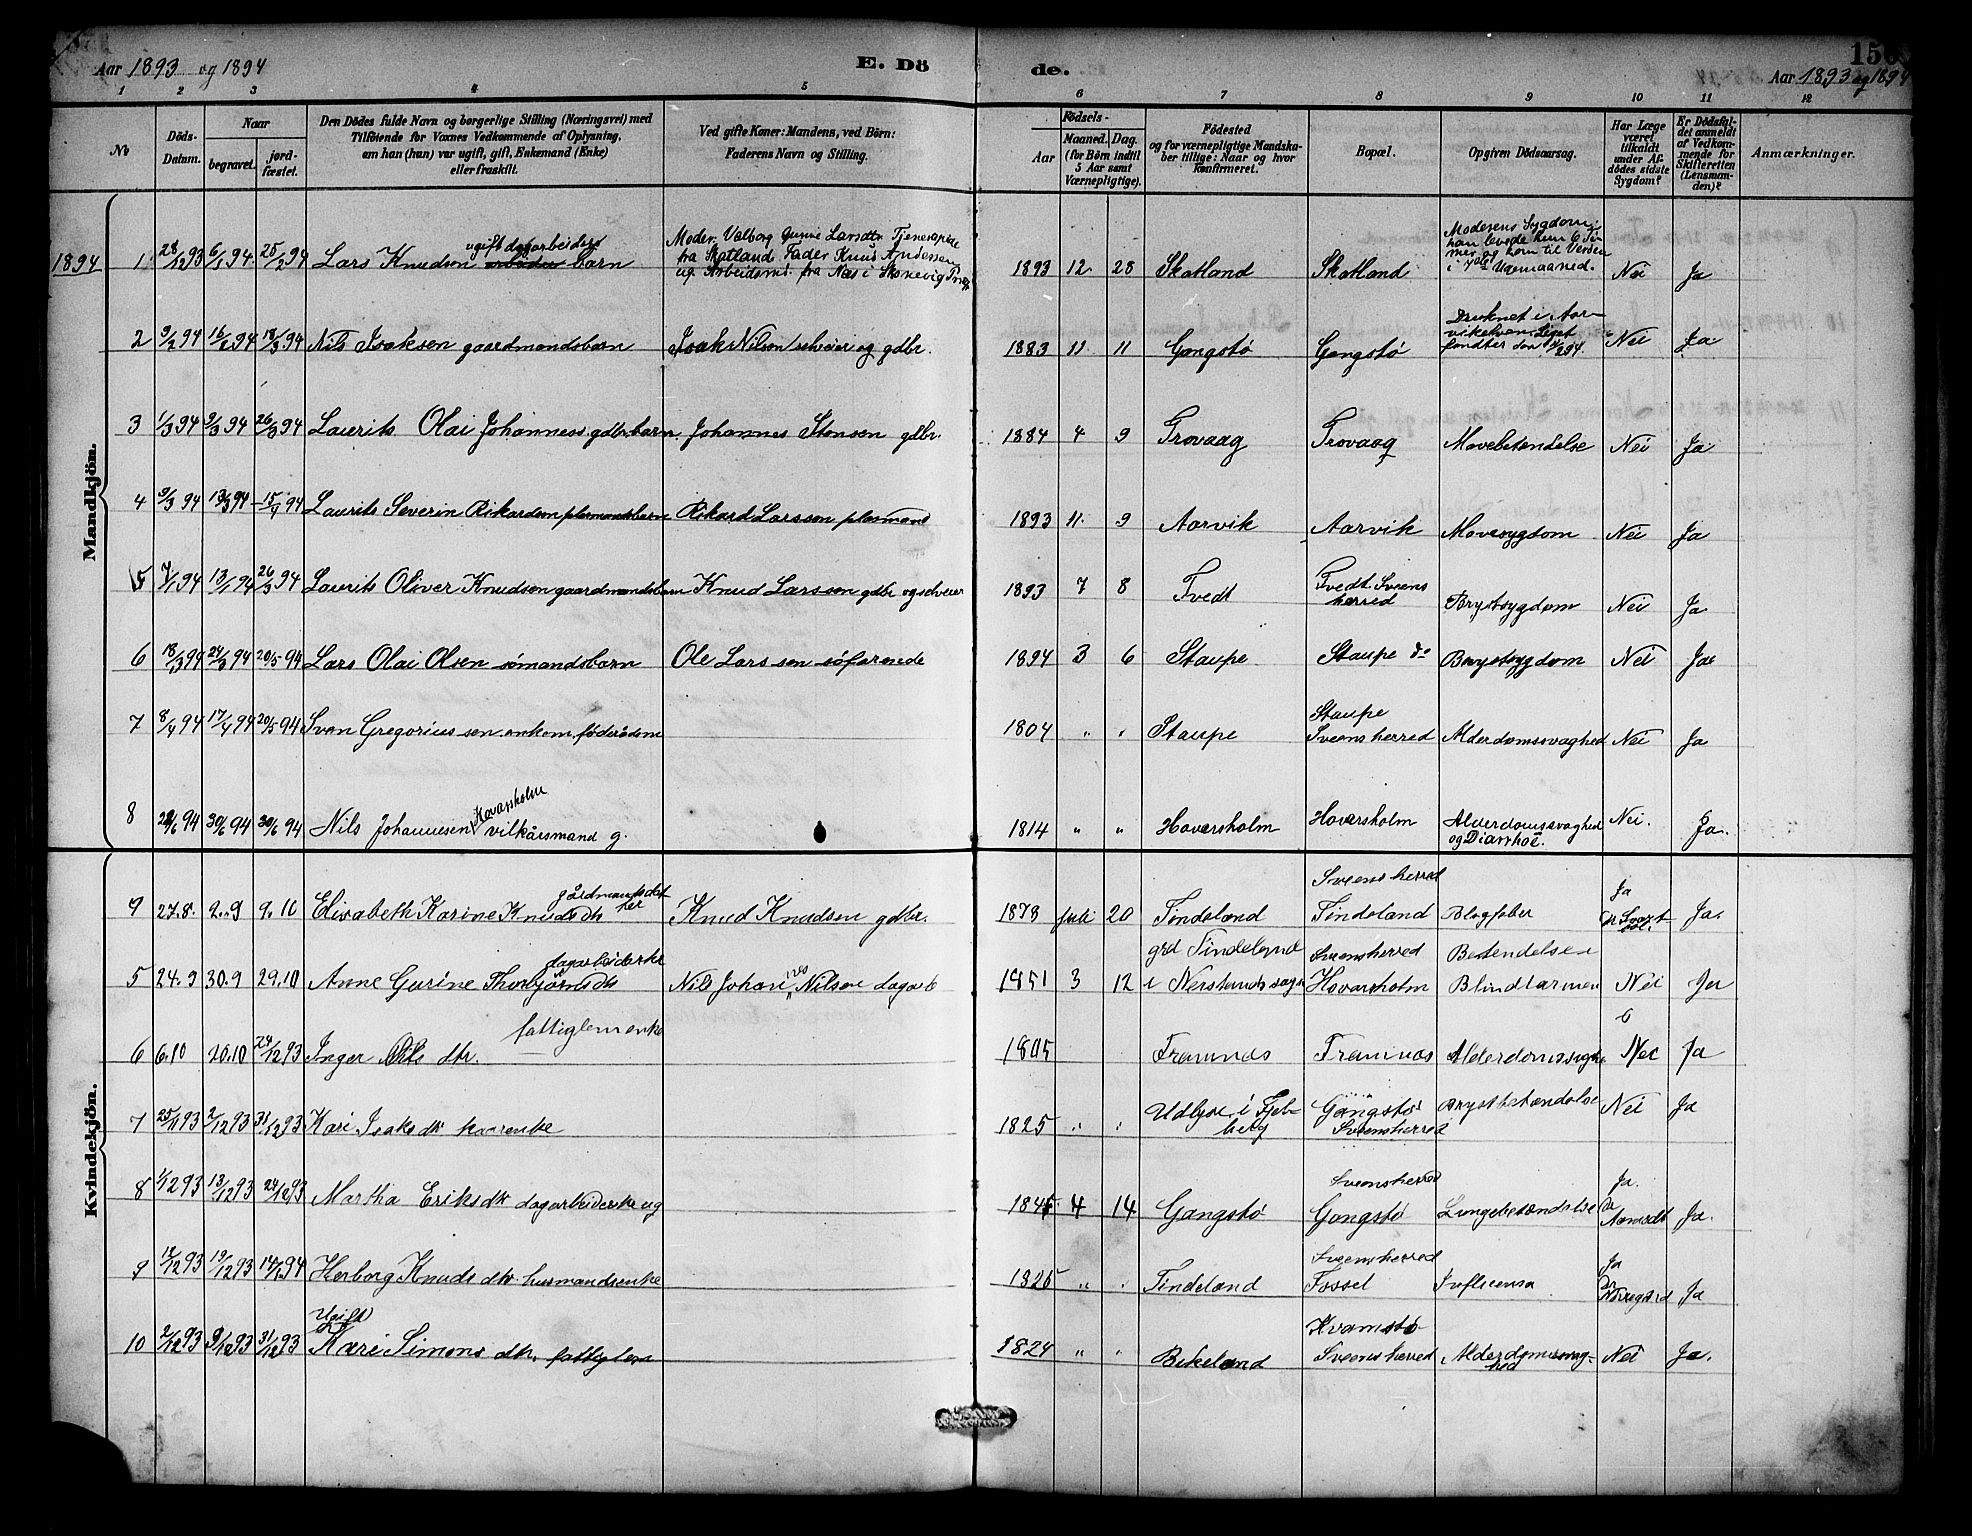 Aar 1893 og 1894
E. Dö
de.
156
Aar 1893 og 1894
1 2 3 4 5 6 7 8 9 10 11 12
No
Döds-Datum.
Naar
begravet.
jord-fæstet.
Den Dödes fulde Navn og borgerlige Stilling (Næringsvei) med
Tilföiende for Voxnes Vedkommende af Oplysning,
om han (hun) var ugift, gift, Enkemand (Enke)
eller fraskilt.
Ved gifte Koner: Mandens, ved Börn:
Faderens Navn og Stilling.
Födsels-
Aar
Maaned. Dag.
(for Börn indtil
5 Aar samt
Værnepligtige).
Födested
og for værnepligtige Mandska-
ber tillige: Naar og hvor
konfirmeret.
Bopæl.
Opgiven Dödsaarsag.
Har Læge
været
tilkaldt
under Af-
dödes sidste
Sygdom?
Er Dödsfal-
det anmeldt
af Vedkom-
mende for
Skifteretten
(Lensman-
den)?
Anmærkninger.
Mandkjön.
1894 1 28/12 93 6/1 94 25/2 94 Lars Knudsen ugift dagarbeiders barn Moder Valborg Gurine Larsdtr Tjenestepige fra Skatland Fader Knud Andersen ug. Arbeidsmd. fra Næs i Skonevig 1893 12. 28 Skatland Skatland Moderens Sygdom; han levede kun 6 Timer og kom til Verden i 7de Ugemaaned. Nei Ja
2 9/2 94 16/2 94 18/3 94 Nils Isaksen gaardmandsbarn Isak Nilsen selveier og gdbr. 1883 11 11 Gangstö Gangstö Druknet i Aarvikelven. Liget fundter den Nei Ja
3 1/3 94 9/3 94 26/3 94 Laurits Olai Johanness gdbr.barn. Johannes Stensen gdbr. 1884 4 9 Trovaag Trovaag Mavebetendelse Nei Ja
4 9/3 94 13/3 94 15/4 94 Laurits Severin Rikardsen plasmandsbarn Rikard Larssen plasmand 1893 11. 9 Aarvik Aarvik Mavesygdom Nei Ja
5 7/1 94 13/1 94 26/3 94 Laurits Oliver Knudsen gaardmandsbarn Knud Larssen gdbr og selveier 1893 7 8 Tvedt Tvedt Sveens herred Brystsygdom Nei Ja
6 18/3 94 24/3 94 20/5 94 Lars Olai Olsen sömandsbarn Ole Larssen söfarende 1894 3 6 Staupe Staupe do Brystsygdom Nei Ja
7 8/4 94 17/4 94 20/5 94 Sven Gregoriussen enkem. föderådsm 1804 " " Staupe Staupe Sveensherred Alderdomssvaghed Nei Ja
8 94 30/6 94 30/6 94 Nils Johannesen Havarsholm vilkårsmand g. 1814 " " Haversholm Haversholm Alderdomssvaghed og Diarrhoe. Nei. Ja.
Kvindekjön.
9 27.8. 2.9 9.10 Elisabeth Karine Knudsdtr gårdmansdatter Knud Knudsen gdbr. 1873 juli 20 Tindeland Sveens herred Tindeland Ja Ja.
5 24.9 30.9 29.10 Anne Gurine Thorbjörnsdtr dagarbeiderke Nils Johannes Nilsen dagarb 1851 3 12 grd Tindeland i Nerstrands sogn Sveensherred Havarsholm Betendelse i Blindtarmen Nei Ja
6 6.10 20.10 24/12 93 Inger Nils dtr. fattiglem enke 1805 Framnæs Framnæs Alderdomssvaghe Nei Ja
7 25/11 93 2/12 93 31/12 93 Kari Isaksdtr kaarenke 1825 " " Udbjoe i Fjelberg Gangstö Sveensherred Brystbetændelse Nei Ja
8 1/12 93 13/12 93 24/12 93 Martha Eriksdtr dagarbeiderske ug 1845 4 14 Gangstö Sveensherred Gangstö Lungebetændelse Ja. Dr Ja.
9 12/12 93 19/12 93 14/1 94 Herborg Knuds dtr husmandsenke 1825 " " Tindeland Sveensherred Fossel Influensa Ja Dr Ja
10 2/12 93 9/12 93 31/12 93 Ugift Kari Simons dtr. fattiglem 1824 " " Bikeland Kvamstö Sveens herred Alderdomssvaghed Nei Ja.